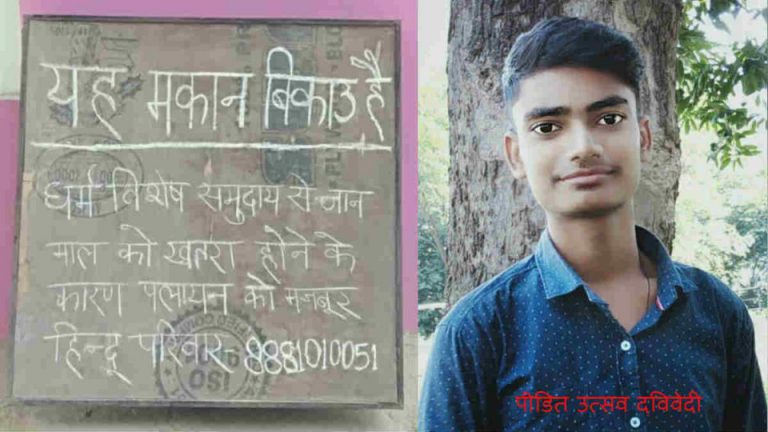 यह मकान बिकाउ है
धर्म विशेष समुदाय से जान
माल को खतरा होने के
कारण पलायन को मजबूर
हिन्दू परिवार 8881010051
ISO
पीडित उत्सव दविवेदी